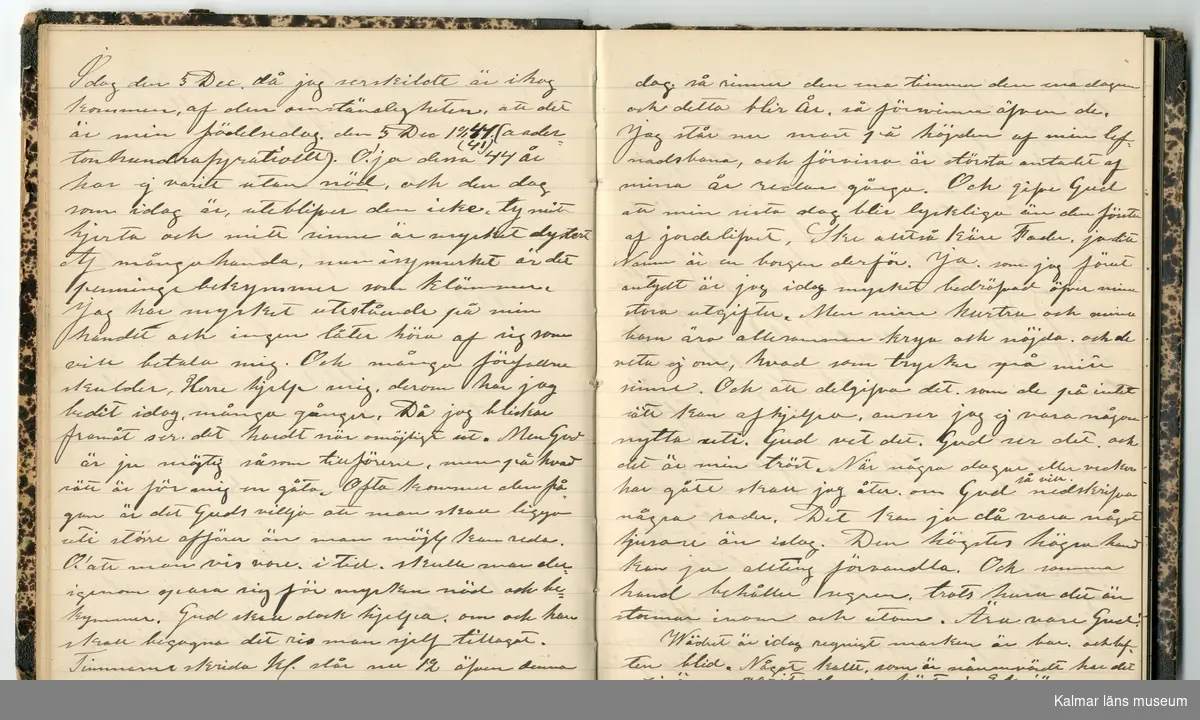 Idag den 5 Dec. då jag serskildt är ihog
kommen, af den omständigheten, att det
är min födelsedag. den 5 Dec 1844. (ader=
tonhundrafyratiofyra). O! ja dessa 44 år
(41)
har ej varit utan nöd, och den dag
som idag är, uteblifver den icke. ty mitt
hjerta och mitt sinne är mycket dystert
Af mångahanda, men isynnerhet är det
penninge bekymmer som klämmer.
Jag har mycket utestående på min
handel och ingen låter höra af sig som
vill betala mig. Och många förfallna
skulder, Herre hjelp mig, derom har jag
bedit idag, många gånger. Då jag blickar
framåt ser det hardt när omöjligt ut. Men Gud
är ju mägtig såsom tillförene, men på hvad
sätt är för mig en gåta. Ofta kommer den frå
gan är det Guds vilja att man skall ligga
uti större affärer än man möjl kan reda.
O! att man vis vore i tid. skulle man der=
igenom spara sig för mycken nöd och be=
kymmer. Gud skall dock hjelpa. om och han
skall begagna det ris man sjelf tillagat.
Timmarne skrida Kl. står nu 12 äfven denna
dag, så rinner den ena timma den ena dagen
och detta blir År. så försvinna äfven de.
Jag står nu man på höjden af min lef=
nadsbana, och förvisso är största antalet af
mina år redan gångna. Och gifve Gud
att min sista dag blir lyckliga än den första
af jordelifvet, Ske altså Käre Fader. ja ditt
Namn är en borgen derför. Ja. som jag förut
antydt är jag idag mycket bedröfvad öfver mina
stora utgifter. Men min hustru och mina
barn äro allesamman krya och nöjda. och de
veta ej om, hvad som trycker på mitt
sinne. Och att delgifva det, som de på intet
sätt kan afhjelpa, anser jag ej vara någon
nytta uti. Gud vet det. Gud ser det. och
det är min tröst. När några dagar eller veckor
har gått skall jag åter. om Gud så vill nedskrifva
några rader. Det kan ju då vara något
ljusare än idag. Den högstes högra hand
kan ju allting förvandla. Och samma
hand behåller segren, trots hura det än
stormar inom och utom. Ära vare Gud!
Wädret är idag regnigt marken är bar. och luf=
ten blid. Något kallt, som är nämnvärdt har det
Kalmar läns museum